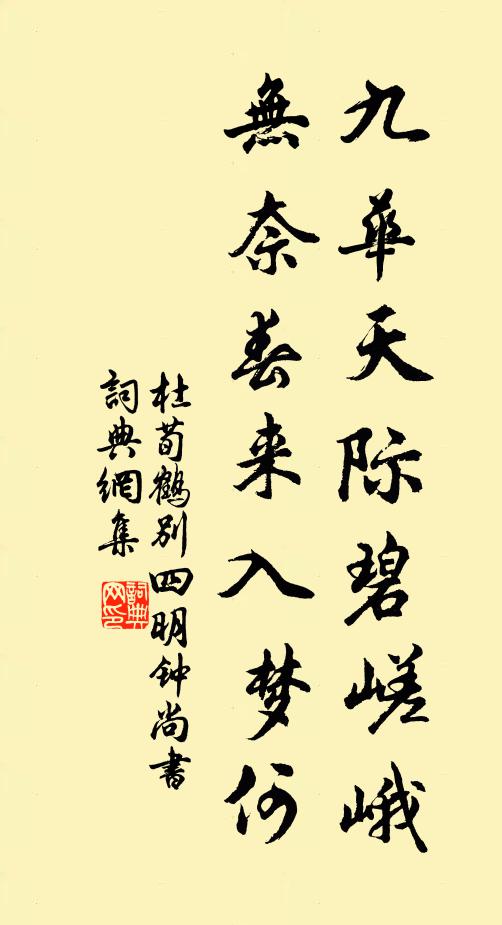 九華天际碧嵯峨
無奈春来入梦何
杜荀鶴别四明钟尚書
詞典網集
詞典
网印